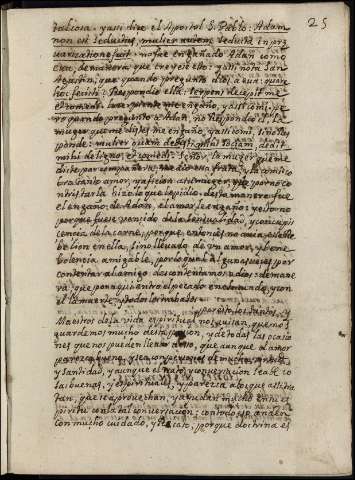 25
y assi dize el Apostol S. Pablo: Adam
non est seductus, mulier autem seducta in pre
varicatione fuit. no fue engañado Adan como
Eva, de manera que creyese esto: y assi nota San
Agustin, que quando pregunto dios a eva: quare
hoc fecisti? Respondio ella: serpens decepit me
et comedi: la serpiente me engaño, y assi comi. pe
ro quando pregunto a Adan, no Respondio el: la
muger que me distes me engaño, y assi comi, sino Res
ponde: mulier quam dedisti mihi sociam, dedit
mihi de ligno, et comedi: Señor, la muger que me
diste por compañera me dio esa fruta, y la comi. co
bro tanto amor, y aficion a la muger, que por no co
ntristarla hizo lo que le pidio. desta manera fue
el engaño de Adan, el amor le engaño: y esto no
porque fuese vencido de la sensualidad, y concupis
cencia de la carne; porque entonces no avia
sino llevado de un amor, y bene
volencia amigable, por lo qual algunas vejes por
contentar al amigo descontentamos a dios: de mane
ra que por aqui entro el pecado en el mundo, y con
el la muerte, y todos los trabajos
por esto los santos, y
Maestros de la vida espiritual nos avisan, que nos
guardemos mucho desta y de todas las ocasio
nes que nos pueden llevar a eso, que aunque el amor
paresca bueno, y sea con personas de mucha
y santidad, y aunque el trato, y conversacion sea de co
sas buenas, y espirituales, y paresca a los que assi tra
tan, que se aprovechan, y ayudan mucho en su es
piritu con la tal conversacion; con todo eso anden
con mucho cuidado, y recato, porque doctrina es